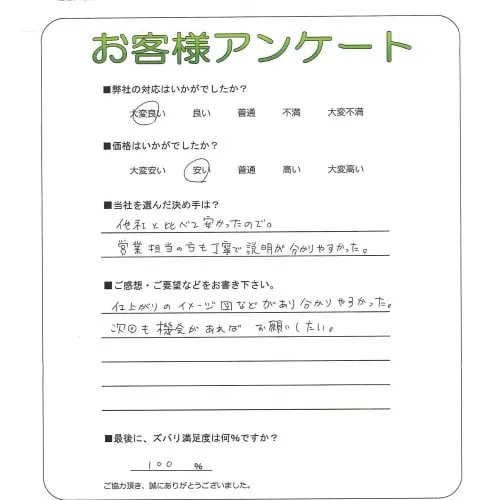 お客様アンケート
■弊社の対応はいかがでしたか？
大変良い 良い 普通 不満 大変不満
■価格はいかがでしたか？
大変安い 安い 普通 高い 大変高い
■当社を選んだ決め手は？
他社と比べて安かったので。
営業担当の方も丁寧で説明が分かりやすかった。
■ご感想・ご要望などをお書き下さい。
仕上がりのイメージ図などがあり分かりやすかった。
次回も機会があれば お願いしたい。
■最後に、ズバリ満足度は何％ですか？
100 ％
ご協力頂き、誠にありがとうございました。